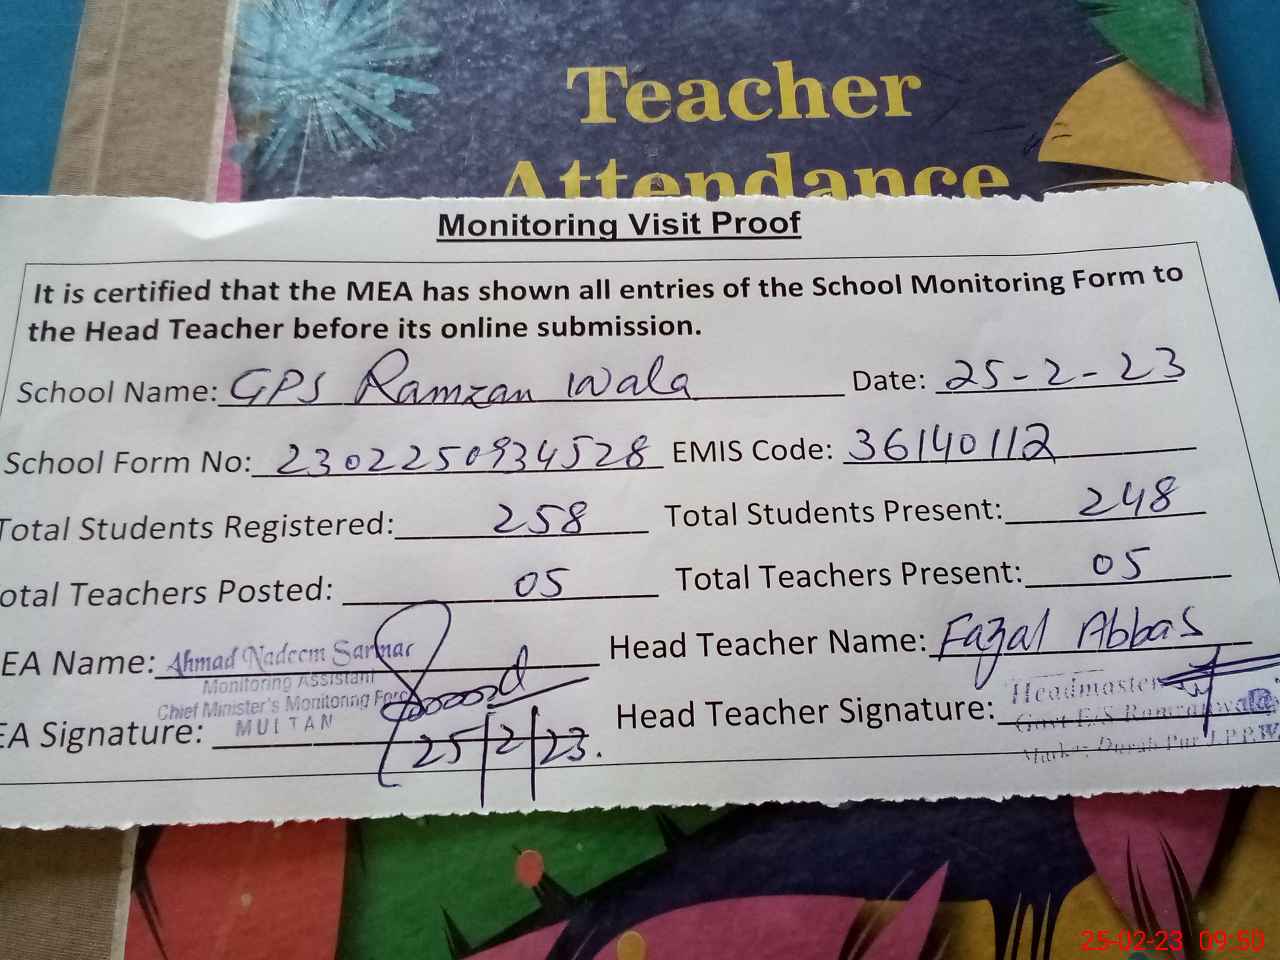 Teacher
Attendance
Monitoring Visit Proof
It is certified that the MEA has shown all entries of the School Monitoring Form to
the Head Teacher before its online submission.
School Name: GPS Ramzan Wala Date: 25-2-23
School Form No: 2302250934528 EMIS Code: 36140112
Total Students Registered: 258 Total Students Present: 248
otal Teachers Posted: 05 Total Teachers Present: 05
EA Name: Ahmad Nadeem Sarwar Head Teacher Name: Fazal Abbas
Monitoring Assistant
Chief Minister's Monitoring Force
MULTAN
EA Signature: 25/2/23. Head Teacher Signature:
Headmaster
Govt E/S Ramzan wala
25-02-23 09:50